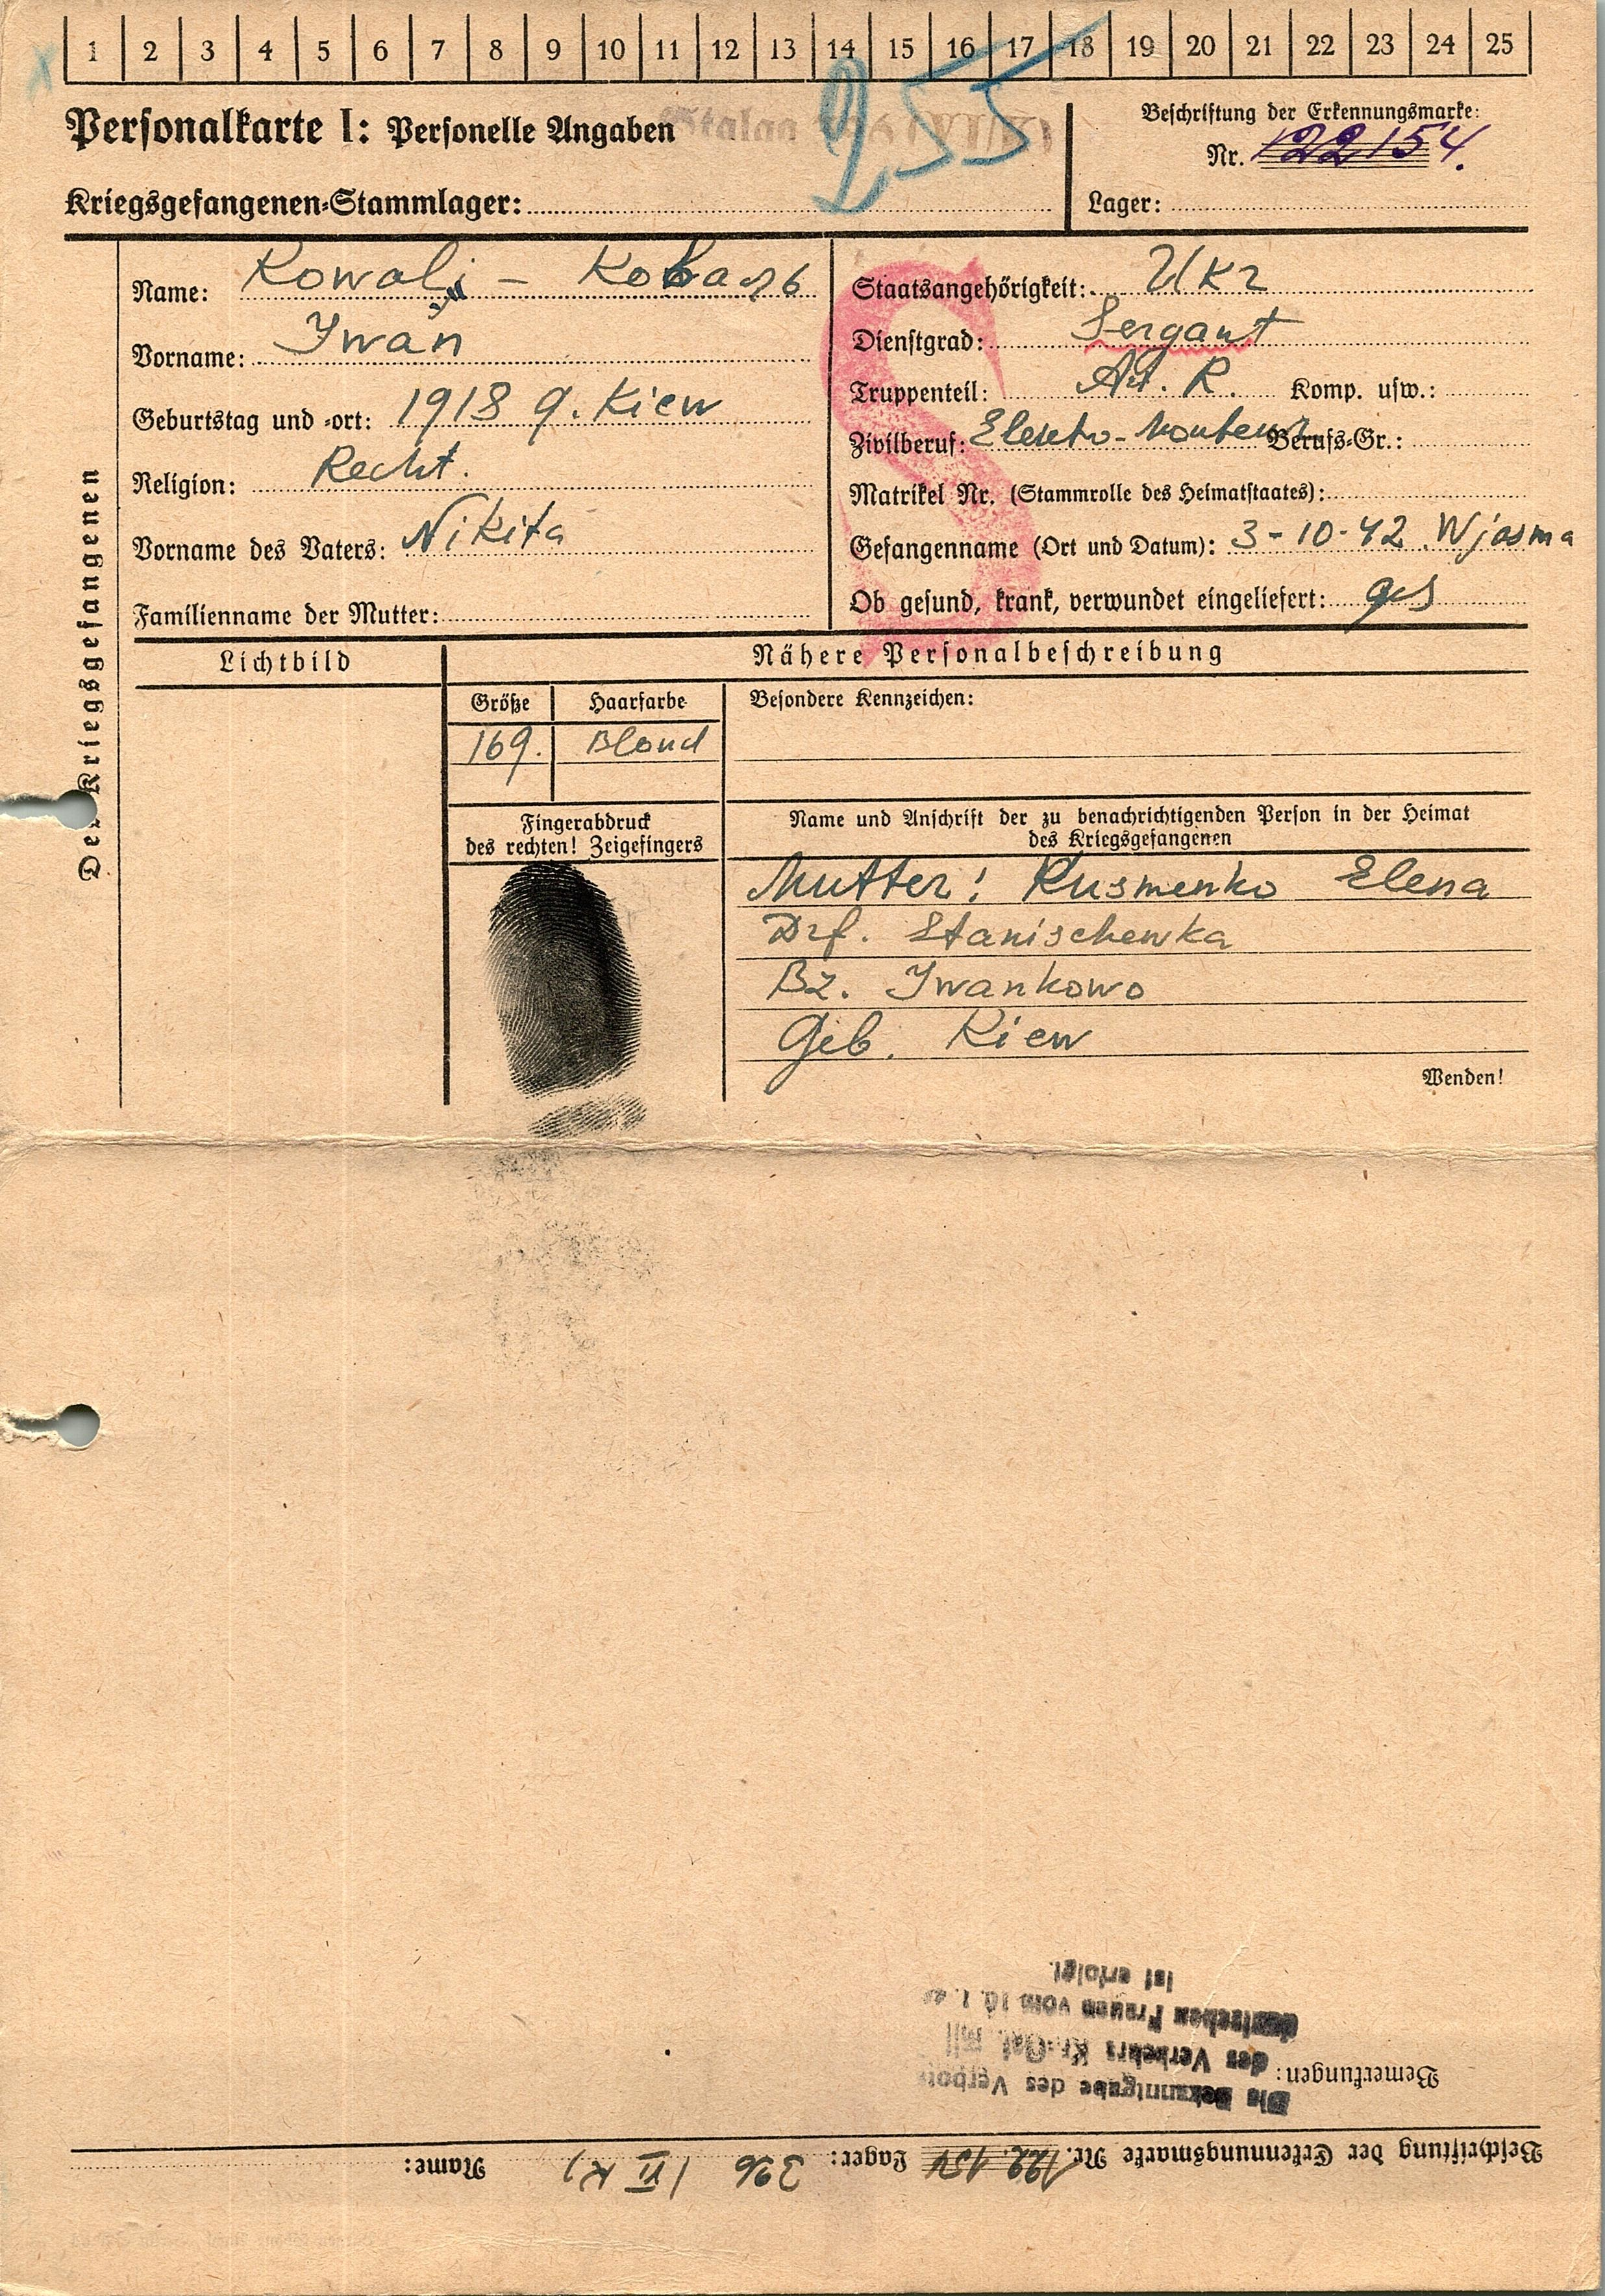 1 2 3 4 5 6 7 8 9 10 11 12 13 14 15 16 17 18 19 20 21 22 23 24 25
Personalkarte I: Personelle Angaben
Stalag (VI/K)
255
Beschriftung der Erkennungsmarke:
Nr. 122154.
Kriegsgefangenen-Stammlager:
Lager:
Des Kriegsgefangenen
Name: Kowalj - Коваль
Vorname: Iwan
Geburtstag und -ort: 1918 g. Kiew
Religion: Recht.
Vorname des Vaters: Nikita
Familienname der Mutter:
S
Staatsangehörigkeit: Ukr
Dienstgrad: Sergant
Truppenteil: Art. R. Komp. usw.:
Zivilberuf: Elektro-Monteur Berufs-Gr.:
Matrikel Nr. (Stammrolle des Heimatstaates):
Gefangenname (Ort und Datum): 3-10-42 Wjasma
Ob gesund, krank, verwundet eingeliefert: ges
Lichtbild
Nähere Personalbeschreibung
Größe Haarfarbe
169. Blond
Besondere Kennzeichen:
Fingerabdruck
des rechten! Zeigefingers
Name und Anschrift der zu benachrichtigenden Person in der Heimat
des Kriegsgefangenen
Mutter: Kusmenko Elena
Drf. Stanischewka
Bz. Iwankowo
Geb. Kiew
Wenden!
Beschriftung der Erkennungsmarke Nr. 122.154 Lager: 326 (VI K) Name:
Bemerkungen:
Die Bekanntgabe des Verbots
des Verkehrs Kr.-Gef. mit
deutschen Frauen vom 10. 1.
ist erfolgt.